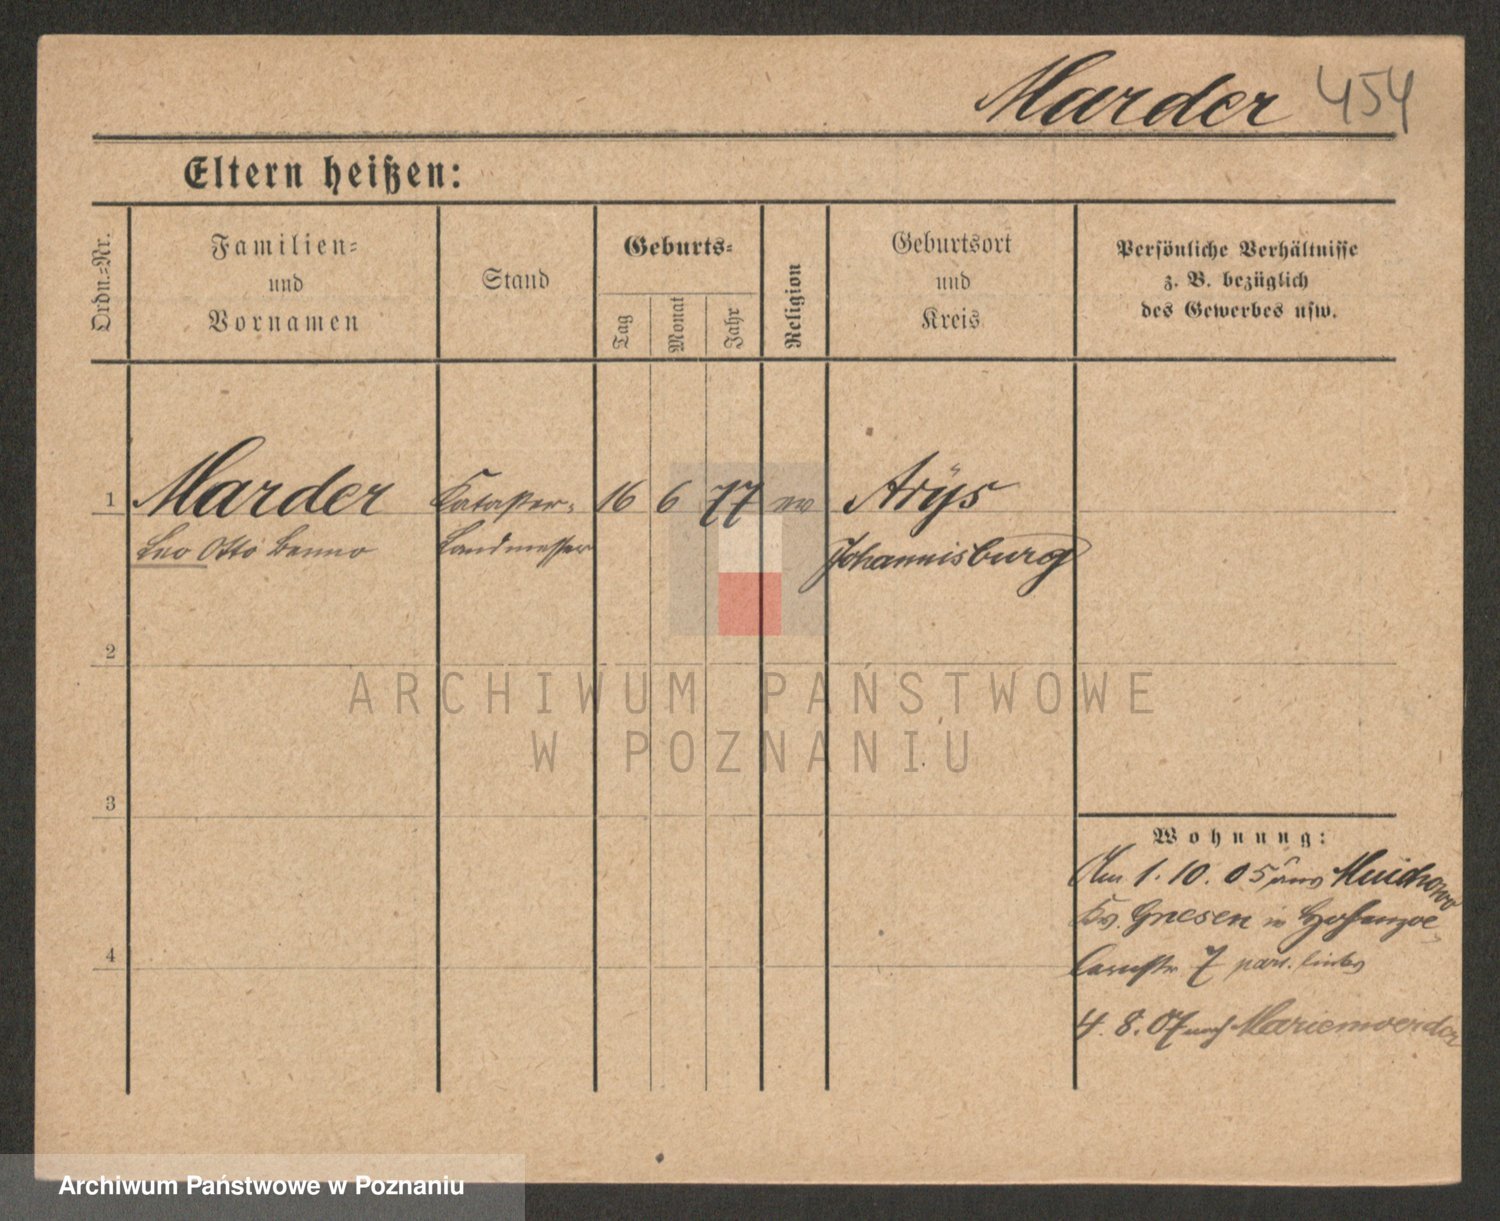 Marder 454
Eltern heißen:
Ordn.-Nr.
Familien-
und
Vornamen
Stand
Geburts-
Tag
Monat
Jahr
Religion
Geburtsort
und
Kreis
Persönliche Verhältnisse
z. B. bezüglich
des Gewerbes usw.
1 Marder Kataster- 16 6 77 ev Arÿs
Leo Otto Benno Landmesser Johannisburg
2
ARCHIWUM PAŃSTWOWE
W POZNANIU
3
Wohnung:
Am 1. 10. 05 aus
Kr. Gnesen in Hohenzol-
lernstr 7 part. links
4
4. 8. 07 nach Marienwerder
Archiwum Państwowe w Poznaniu